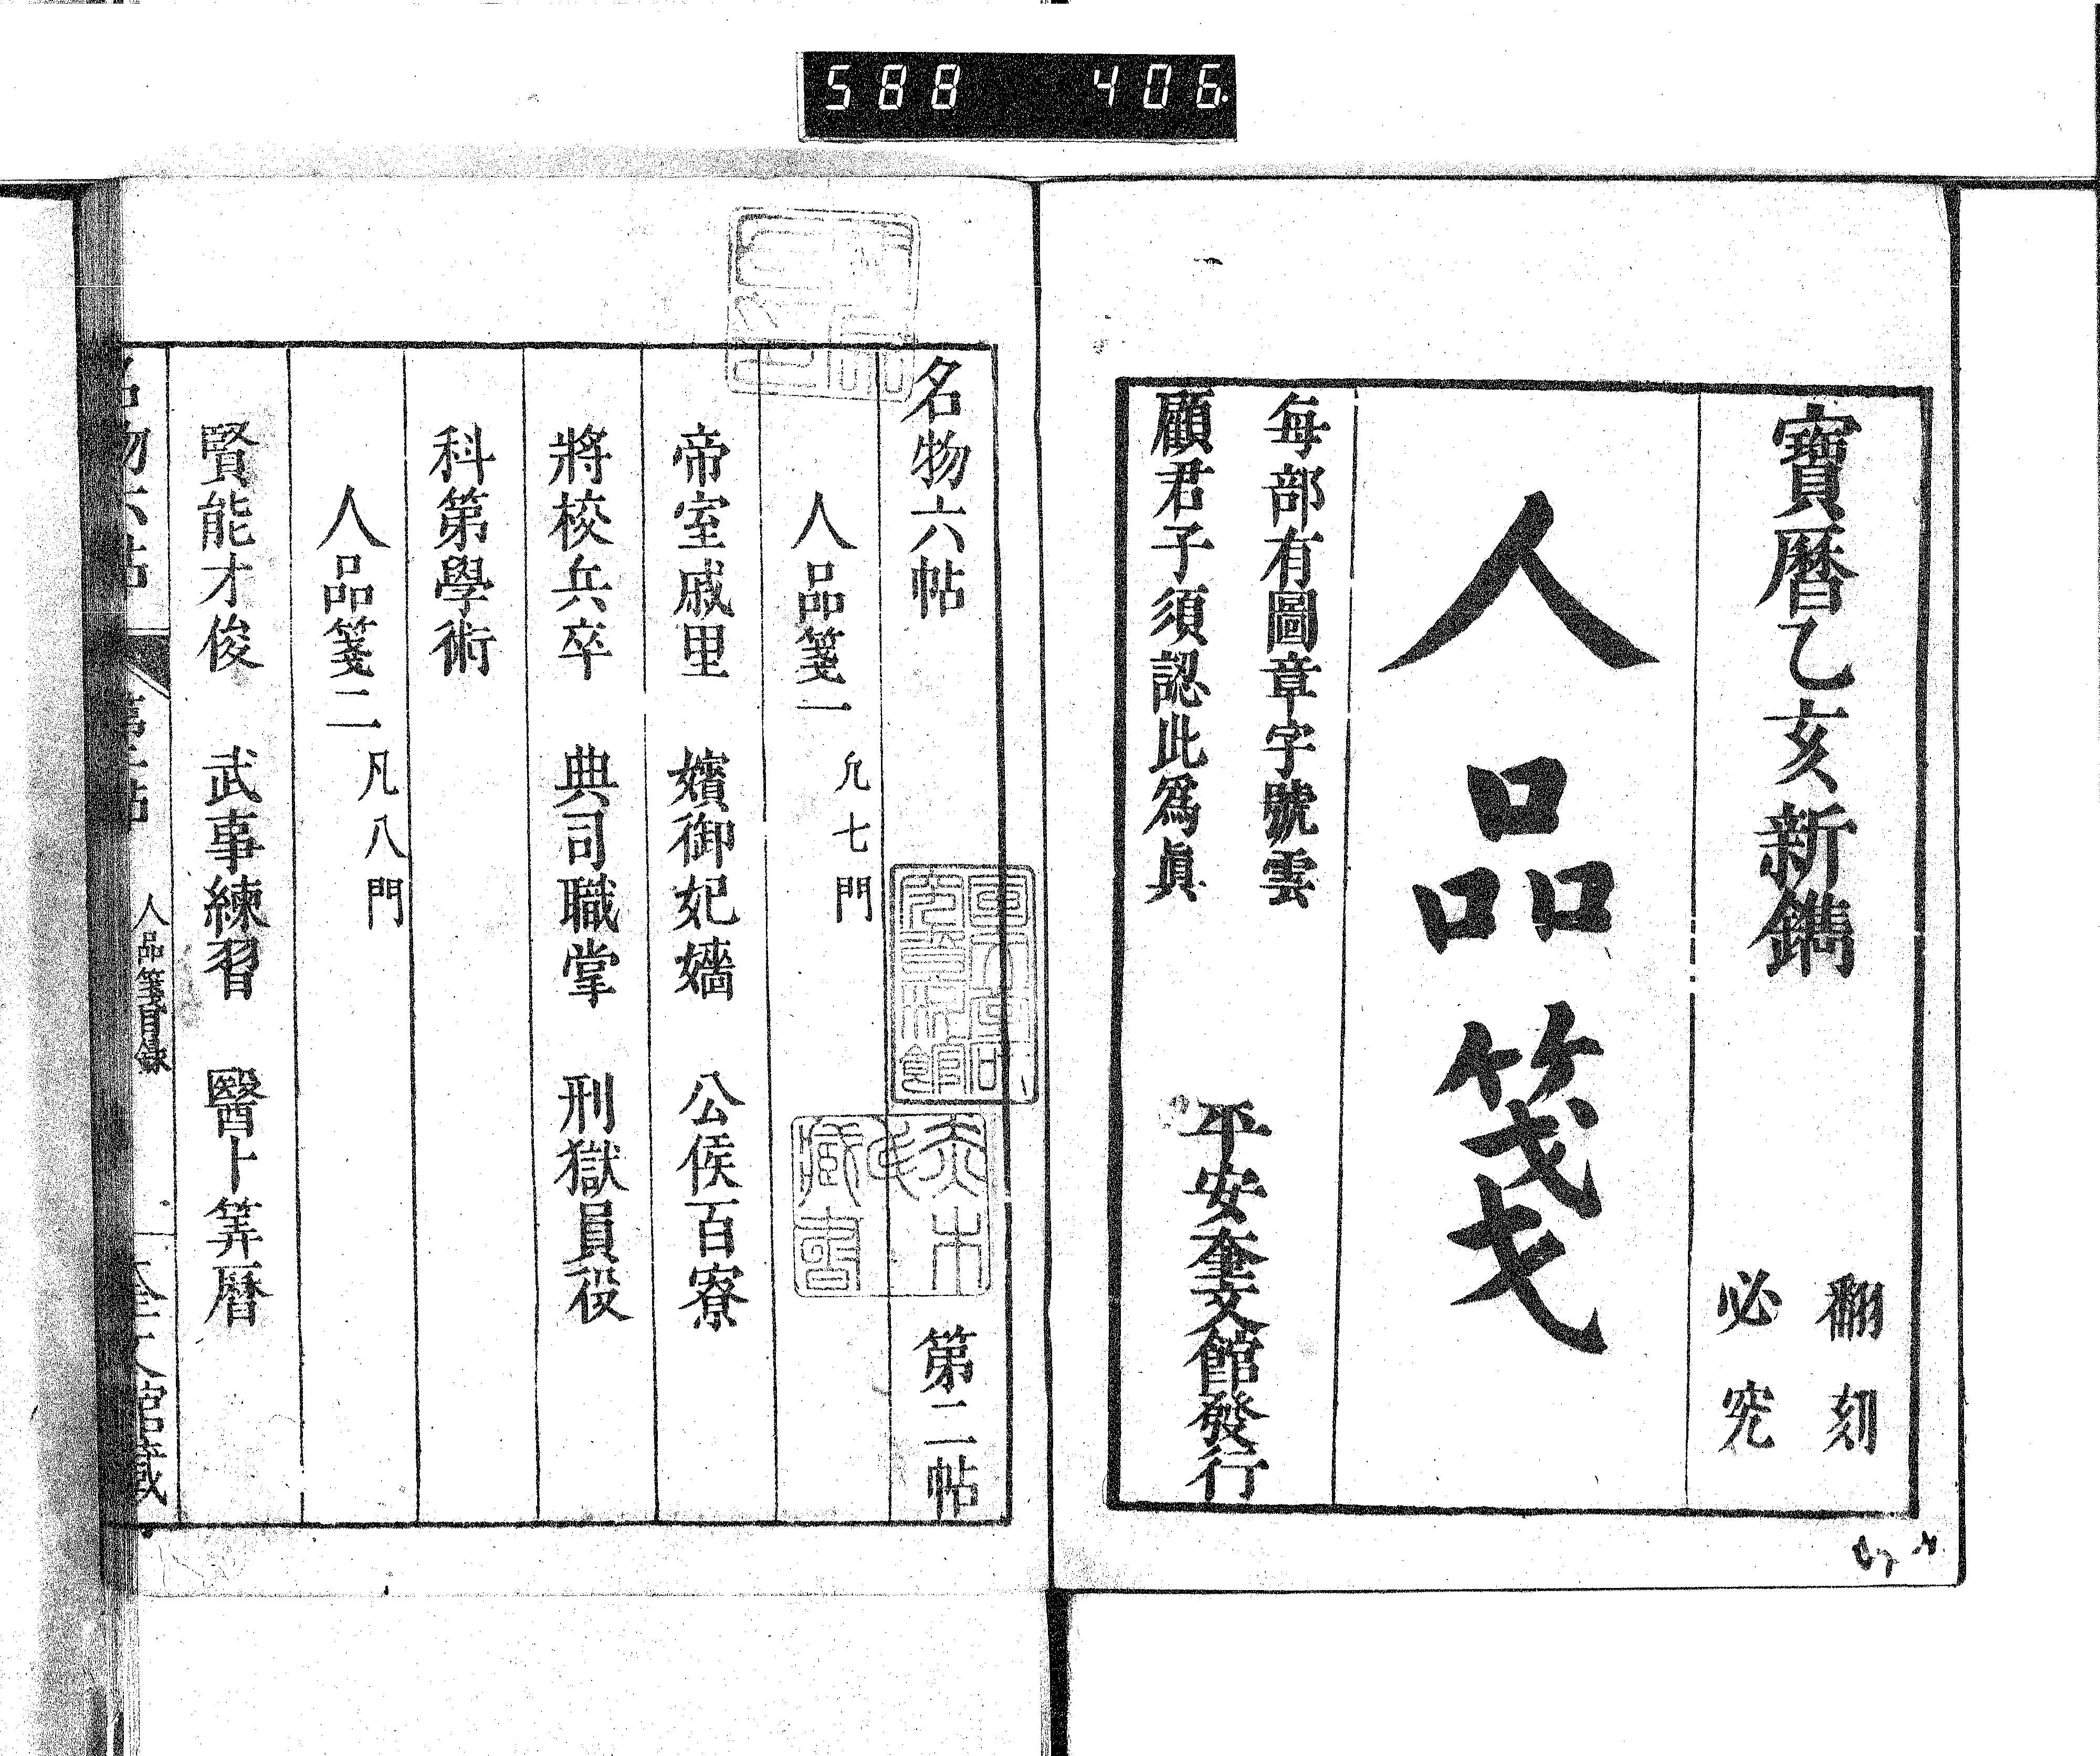 588 406
寶暦乙亥新鐫
翻刻
必究
人品箋
每部有圖章字號雲
顧君子須認此爲眞
平安奎文館發行
名物六帖 第二帖
人品箋一 凢七門
帝室戚里 嬪御妃嬙 公侯百寮
將校兵卒 典司職掌 刑獄員役
科第學術
人品箋二 凡八門
賢能才俊 武事練習 醫卜筭暦
人品箋目録